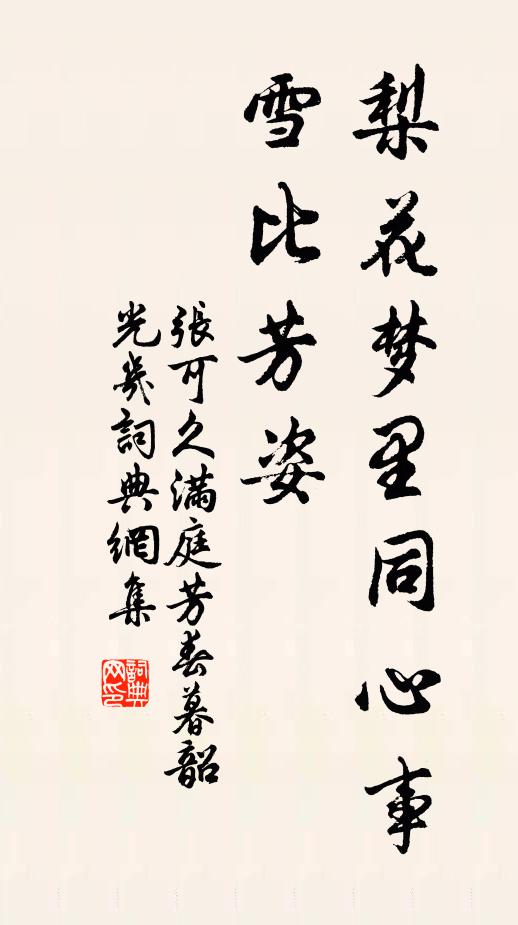 梨花梦里同心事
雪比芳姿
張可久滿庭芳春暮韶
光幾詞典網集
詞典
网印